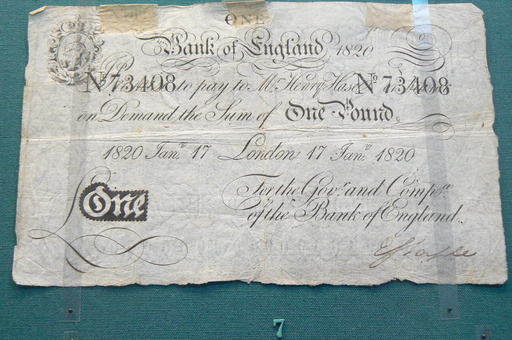 ONE
Bank of England 1820
Nº 73408 to pay to Mr. Henry Hase Nº 73408
on Demand the Sum of One Pound
1820 Janry 17 London 17 Janry 1820
One For the Govr. and Compa.
of the Bank of England.
7